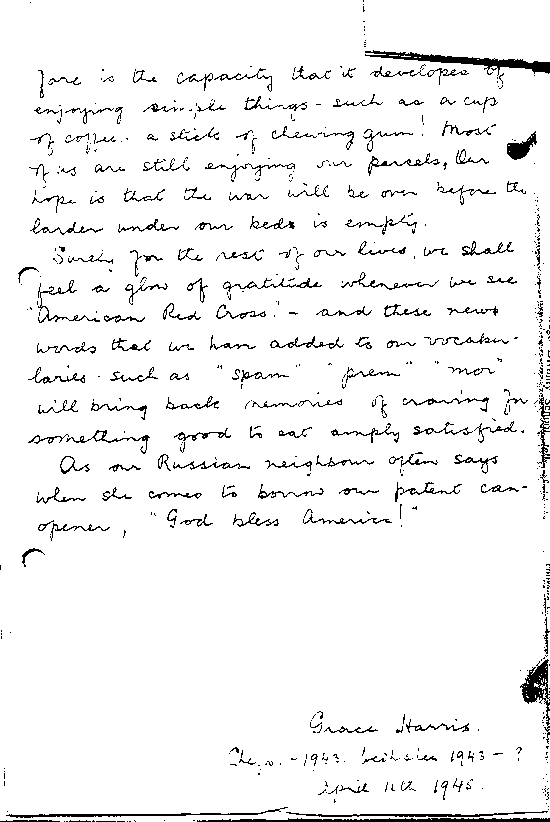 fare is the capacity that it developes of
enjoying simple things - such as a cup
of coffee. a stick of chewing gum! Most
of us are still enjoying our parcels, Our
hope is that the war will be over before the
larder under our beds is empty.
Surely for the rest of our lives, we shall
feel a glow of gratitude whenever we see
"American Red Cross." - and these new
words that we have added to our vocabu-
laries - such as "spam" "prem" "mor"
will bring back memories of craving for
something good to eat amply satisfied.
As our Russian neighbour often says
when she comes to borrow our patent can-
opener, "God bless America!"
Grace Harris.
- 1943. 1943 - ?
April 11th 1945.